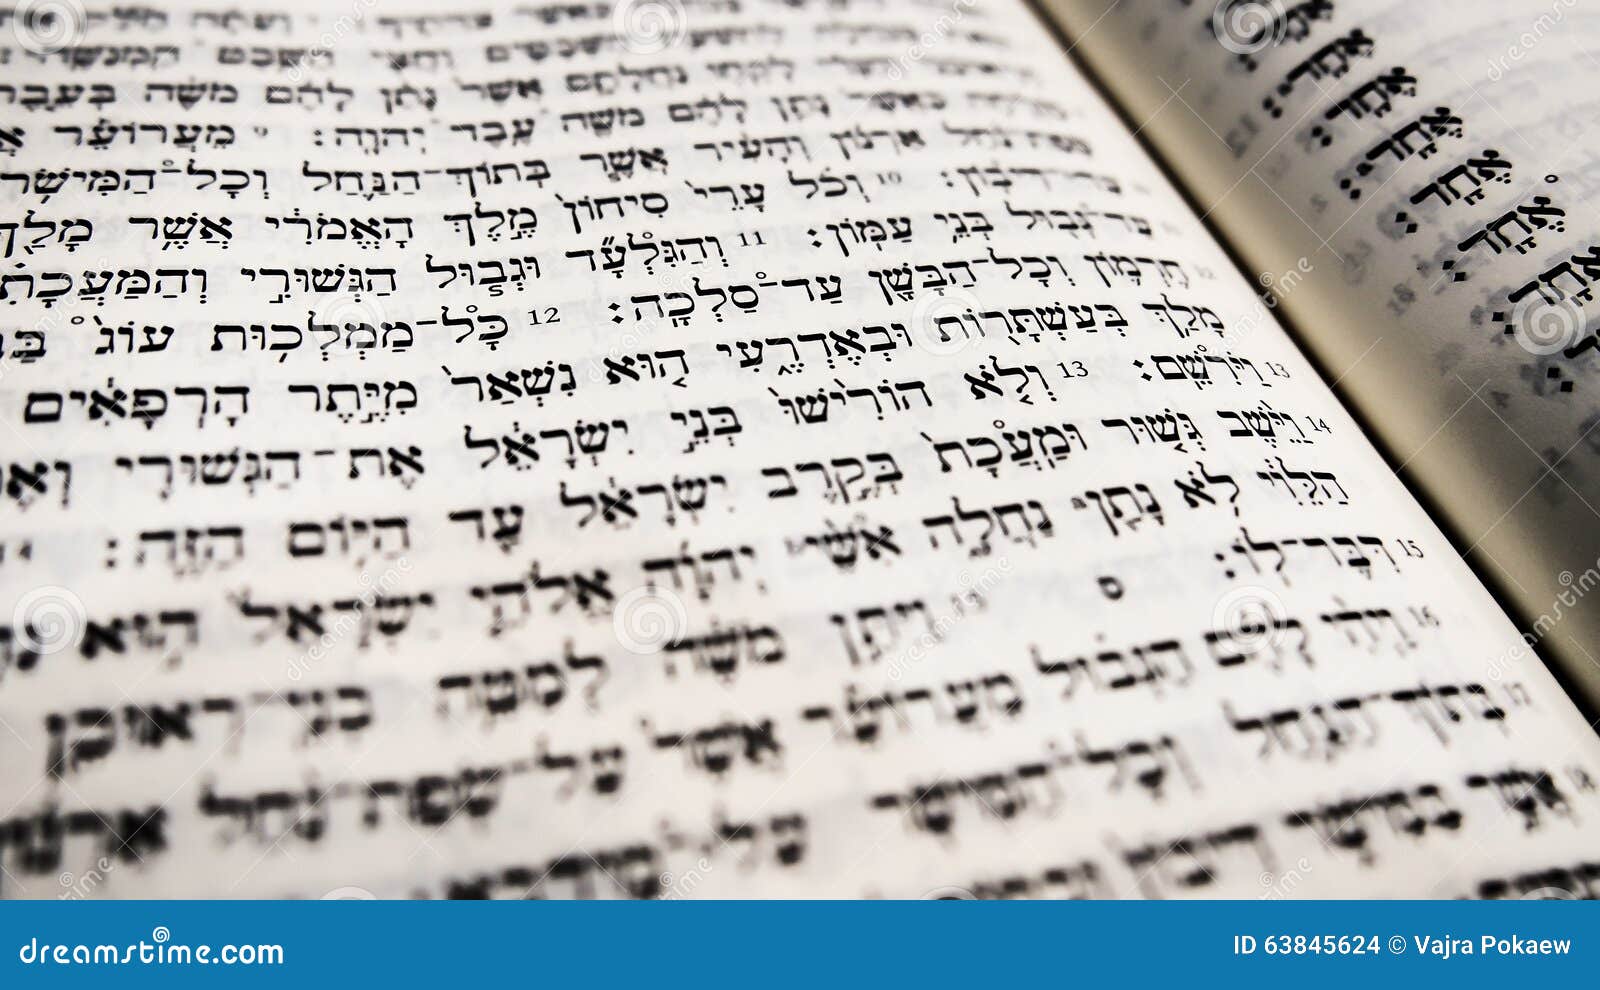 לָקְחוּ נַחֲלָתָם אֲשֶׁר נָתַן לָהֶם מֹשֶׁה בְּעֵבֶר
כַּאֲשֶׁר נָתַן לָהֶם מֹשֶׁה עֶבֶד יְהוָה׃ 9 מֵעֲרוֹעֵר
נַחַל אַרְנוֹן וְהָעִיר אֲשֶׁר בְּתוֹךְ־הַנַּחַל וְכָל־הַמִּישֹׁר
10 וְכֹל עָרֵי סִיחוֹן מֶלֶךְ הָאֱמֹרִי אֲשֶׁר מָלַךְ
עַד־גְּבוּל בְּנֵי עַמּוֹן׃ 11 וְהַגִּלְעָד וּגְבוּל הַגְּשׁוּרִי וְהַמַּעֲכָתִי
חֶרְמוֹן וְכָל־הַבָּשָׁן עַד־סַלְכָה׃ 12 כָּל־מַמְלְכוּת עוֹג
מָלַךְ בְּעַשְׁתָּרוֹת וּבְאֶדְרֶעִי הוּא נִשְׁאַר מִיֶּתֶר הָרְפָאִים
13 וַיֹּרִשֵׁם׃ 13 וְלֹא הוֹרִישׁוּ בְּנֵי יִשְׂרָאֵל אֶת־הַגְּשׁוּרִי
14 וַיֵּשֶׁב גְּשׁוּר וּמַעֲכָת בְּקֶרֶב יִשְׂרָאֵל עַד הַיּוֹם הַזֶּה׃ 14
הַלֵּוִי לֹא נָתַן נַחֲלָה אִשֵּׁי יְהוָה אֱלֹהֵי יִשְׂרָאֵל הוּא
15 דִּבֶּר־לוֹ׃ ס 15 וַיִּתֵּן מֹשֶׁה לְמַטֵּה בְנֵי־רְאוּבֵן
16 וַיְהִי לָהֶם הַגְּבוּל מֵעֲרוֹעֵר אֲשֶׁר עַל־שְׂפַת־נַחַל
17 בְּתוֹךְ־הַנַּחַל וְכָל־הַמִּישֹׁר
18 אֲשֶׁר בַּמִּישֹׁר
אֶחָד׃
אֶחָד׃
אֶחָד׃
אֶחָד׃
אֶחָד׃
אֶחָד׃
dreamstime.com
ID 63845624 © Vajra Pokaew